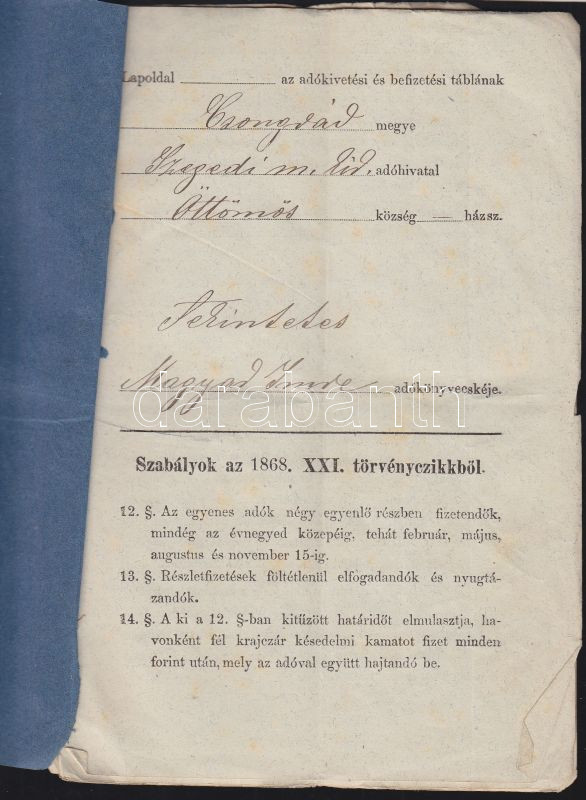 Lapoldal az adókivetési és befizetési táblának
Csongrád megye
Szegedi m. kid. adóhivatal
Öttömös község — házsz.
Tekintetes
Magyad Imre adókönyvecskéje.
darabanth
Szabályok az 1868. XXI. törvényczikkből.
12. §. Az egyenes adók négy egyenlő részben fizetendők,
mindég az évnegyed közepéig, tehát február, május,
augustus és november 15-ig.
13. §. Részletfizetések föltétlenül elfogadandók és nyugtá-
zandók.
14. §. A ki a 12. §-ban kitűzött határidőt elmulasztja, ha-
vonként fél krajczár késedelmi kamatot fizet minden
forint után, mely az adóval együtt hajtandó be.